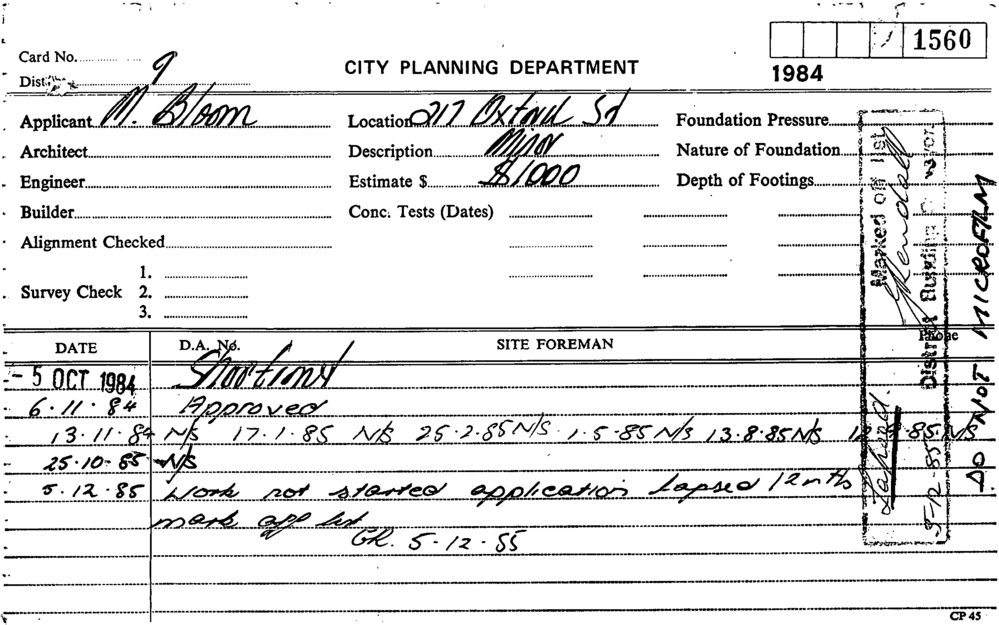 1560
Card No.
9
CITY PLANNING DEPARTMENT
1984
Dist.
Applicant M. Bloom
Location 217 Oxford St
Foundation Pressure
Architect
Description Minor
Nature of Foundation
Engineer
Estimate $ $1000
Depth of Footings
Builder
Conc. Tests (Dates)
Alignment Checked
1.
Survey Check 2.
3.
DATE
D.A. No.
SITE FOREMAN
Phone
- 5 OCT 1984
6·11·84 Approved
13·11·84 N/S 17·1·85 N/S 25·2·85 N/S 1·5·85 N/S 13·8·85 N/S ·85· N/S
25·10·85 N/S
5·12·85 Work not started application lapsed 12 mths
mark off list
GK. 5-12-85
Marked off list
Kendall
District Building
Lapsed.
5-12-85
DO NOT MICROFILM
CP 45